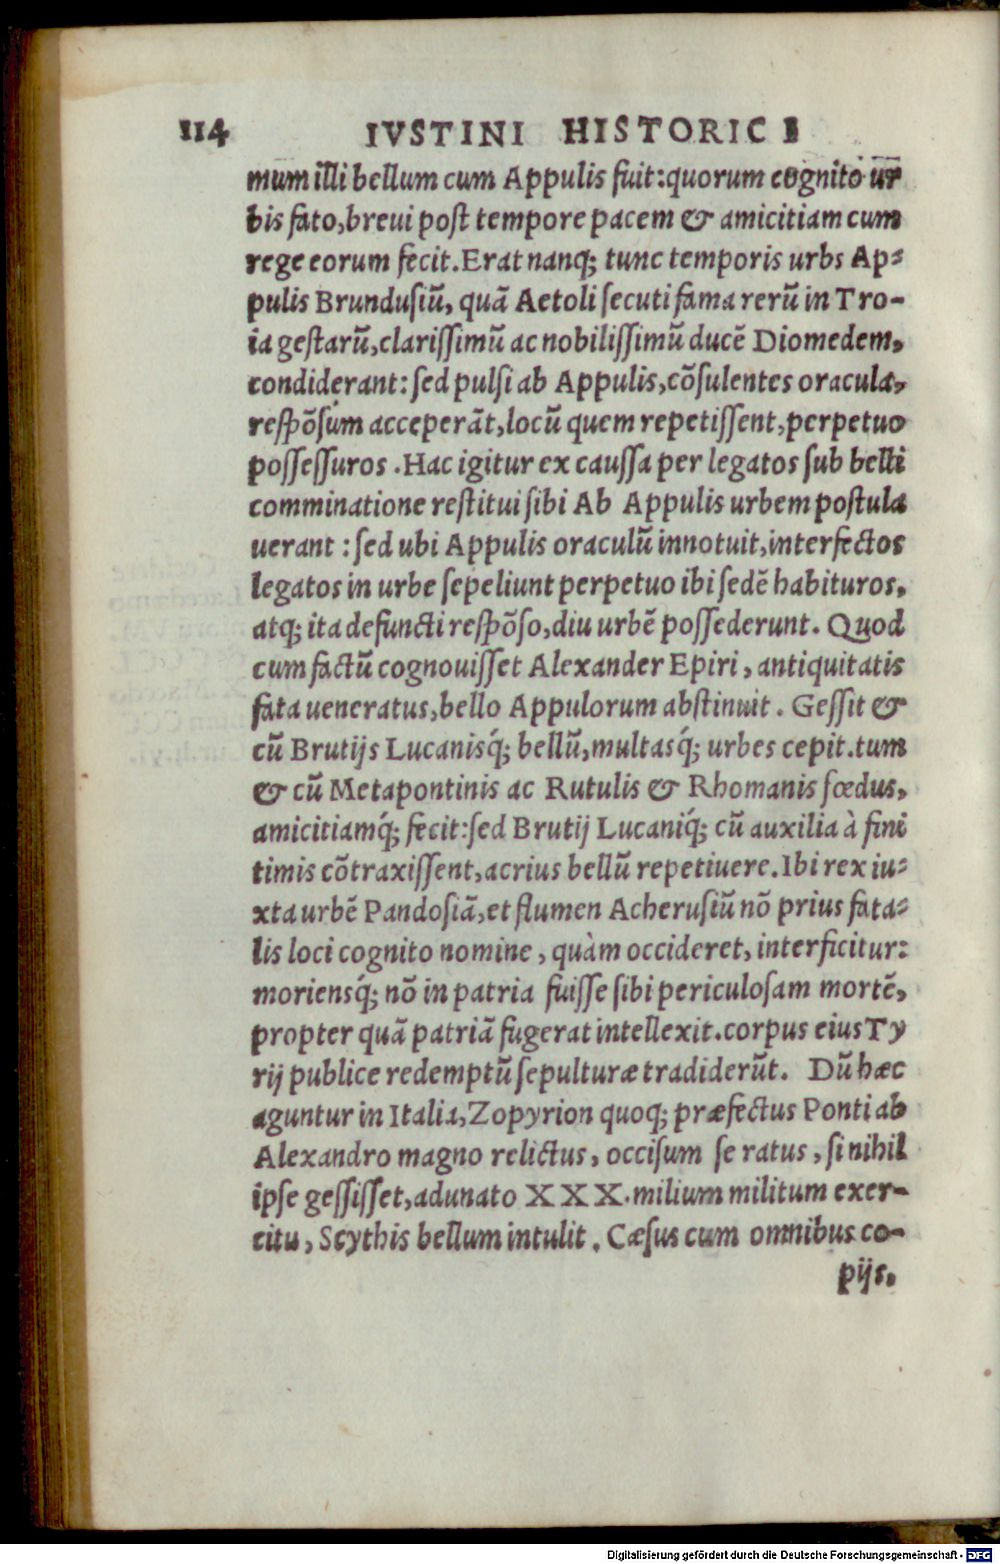 114 IVSTINI HISTORICI
mum illi bellum cum Appulis fuit: quorum cognito ur
bis fato, breui post tempore pacem & amicitiam cum
rege eorum fecit. Erat nanq; tunc temporis urbs Ap-
pulis Brundusiũ, quã Aetoli secuti fama rerũ in Tro-
ia gestarũ, clarissimũ ac nobilissimũ ducẽ Diomedem,
condiderant: sed pulsi ab Appulis, cõsulentes oracula,
respõsum acceperãt, locũ quem repetissent, perpetuo
possessuros. Hac igitur ex caussa per legatos sub belli
comminatione restitui sibi Ab Appulis urbem postula
uerant: sed ubi Appulis oraculũ innotuit, interfectos
legatos in urbe sepeliunt perpetuo ibi sedẽ habituros,
atq; ita defuncti respõso, diu urbẽ possederunt. Quod
cum factũ cognouisset Alexander Epiri, antiquitatis
fata ueneratus, bello Appulorum abstinuit. Gessit &
cũ Brutijs Lucanisq́; bellũ, multasq́; urbes cepit. tum
& cũ Metapontinis ac Rutulis & Rhomanis fœdus,
amicitiamq́; fecit: sed Brutij Lucaniq́; cũ auxilia à fini
timis cõtraxissent, acrius bellũ repetiuere. Ibi rex iu-
xta urbẽ Pandosiã, et flumen Acherusiũ nõ prius fata-
lis loci cognito nomine, quàm occideret, interficitur:
moriensq́; nõ in patria fuisse sibi periculosam mortẽ,
propter quã patriã fugerat intellexit. corpus eius Ty
rij publice redemptũ sepulturæ tradiderũt. Dũ hæc
aguntur in Italia, Zopyrion quoq; præfectus Ponti ab
Alexandro magno relictus, occisum se ratus, si nihil
ipse gessisset, adunato XXX. milium militum exer-
citu, Scythis bellum intulit. Cæsus cum omnibus co-
pijs.
Digitalisierung gefördert durch die Deutsche Forschungsgemeinschaft - DFG